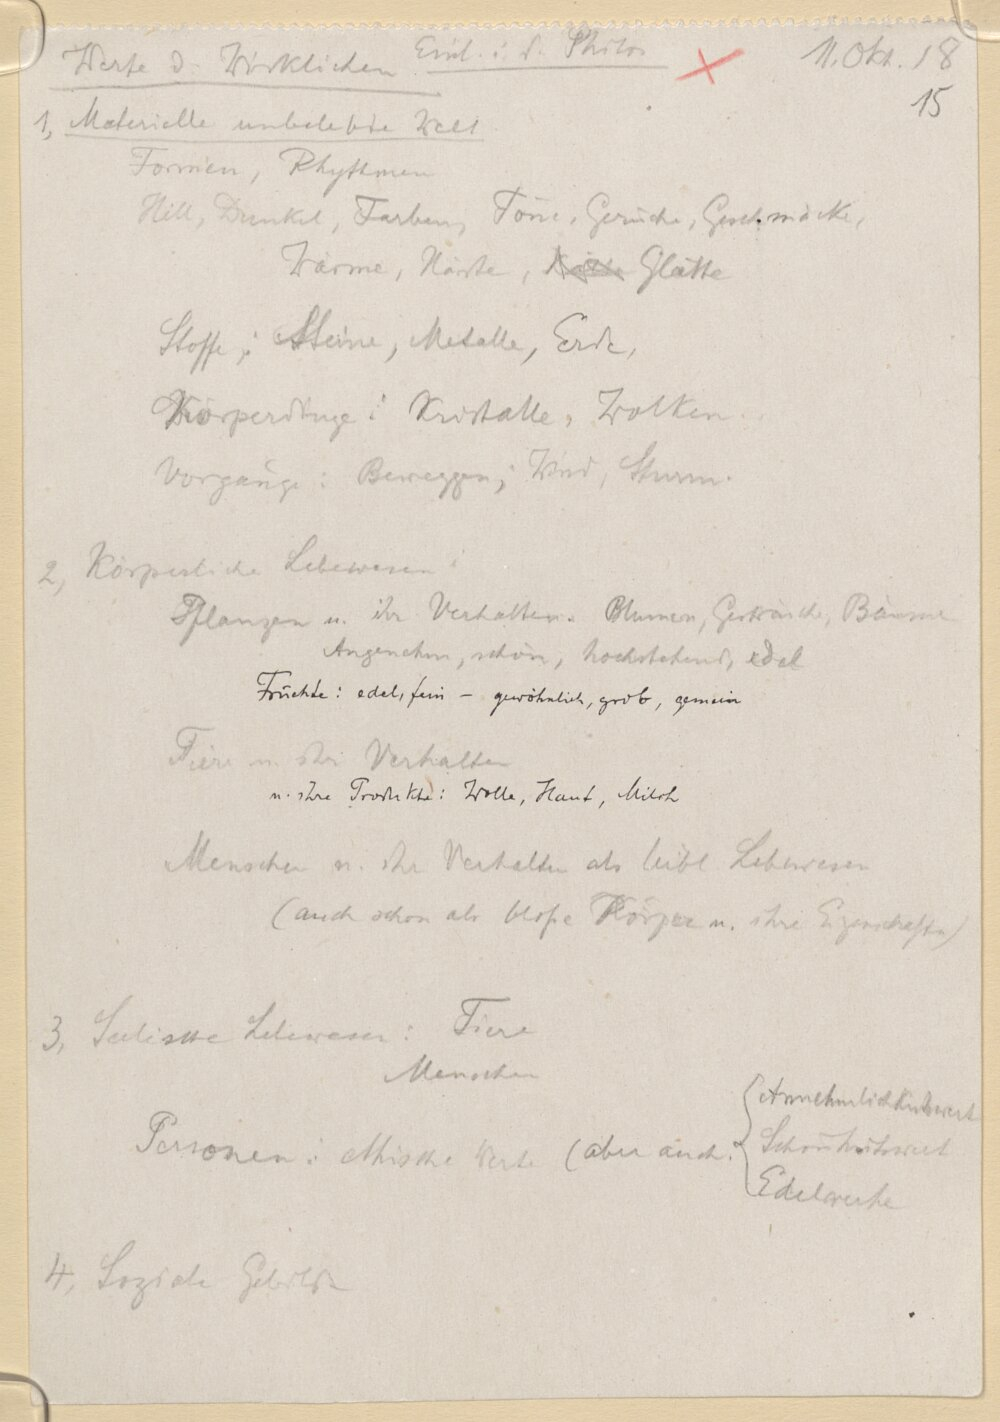 Werte d. Wirklichen Einl. i. d. Philos 11. Okt. 18
15
1, Materielle unbelebte Welt
Formen, Rhythmen
Hell, Dunkel, Farben, Töne, Gerüche, Geschmäcke,
Wärme, Härte, Glätte
Stoffe; Steine, Metalle, Erde,
Körperdinge: Kristalle, Wolken
Vorgänge: Beweggen; Wind, Sturm.
2, Körperliche Lebewesen:
Pflanzen u. ihr Verhalten. Blumen, Gesträuche, Bäume
Angenehm, schön, hochstehend, edel
Früchte: edel, fein – gewöhnlich, grob, gemein
Tiere u. ihr Verhalten
u. ihre Produkte: Wolle, Haut, Milch
Menschen u. ihr Verhalten als leibl Lebewesen
(auch schon als bloße Körper u. ihre Eigenschaften)
3, Seelische Lebewesen: Tiere
Menschen
Personen: ethische Werte (aber auch:
Annehmlichkeitswert
Schönheitswert
Edelwerte
4, Soziale Gebilde